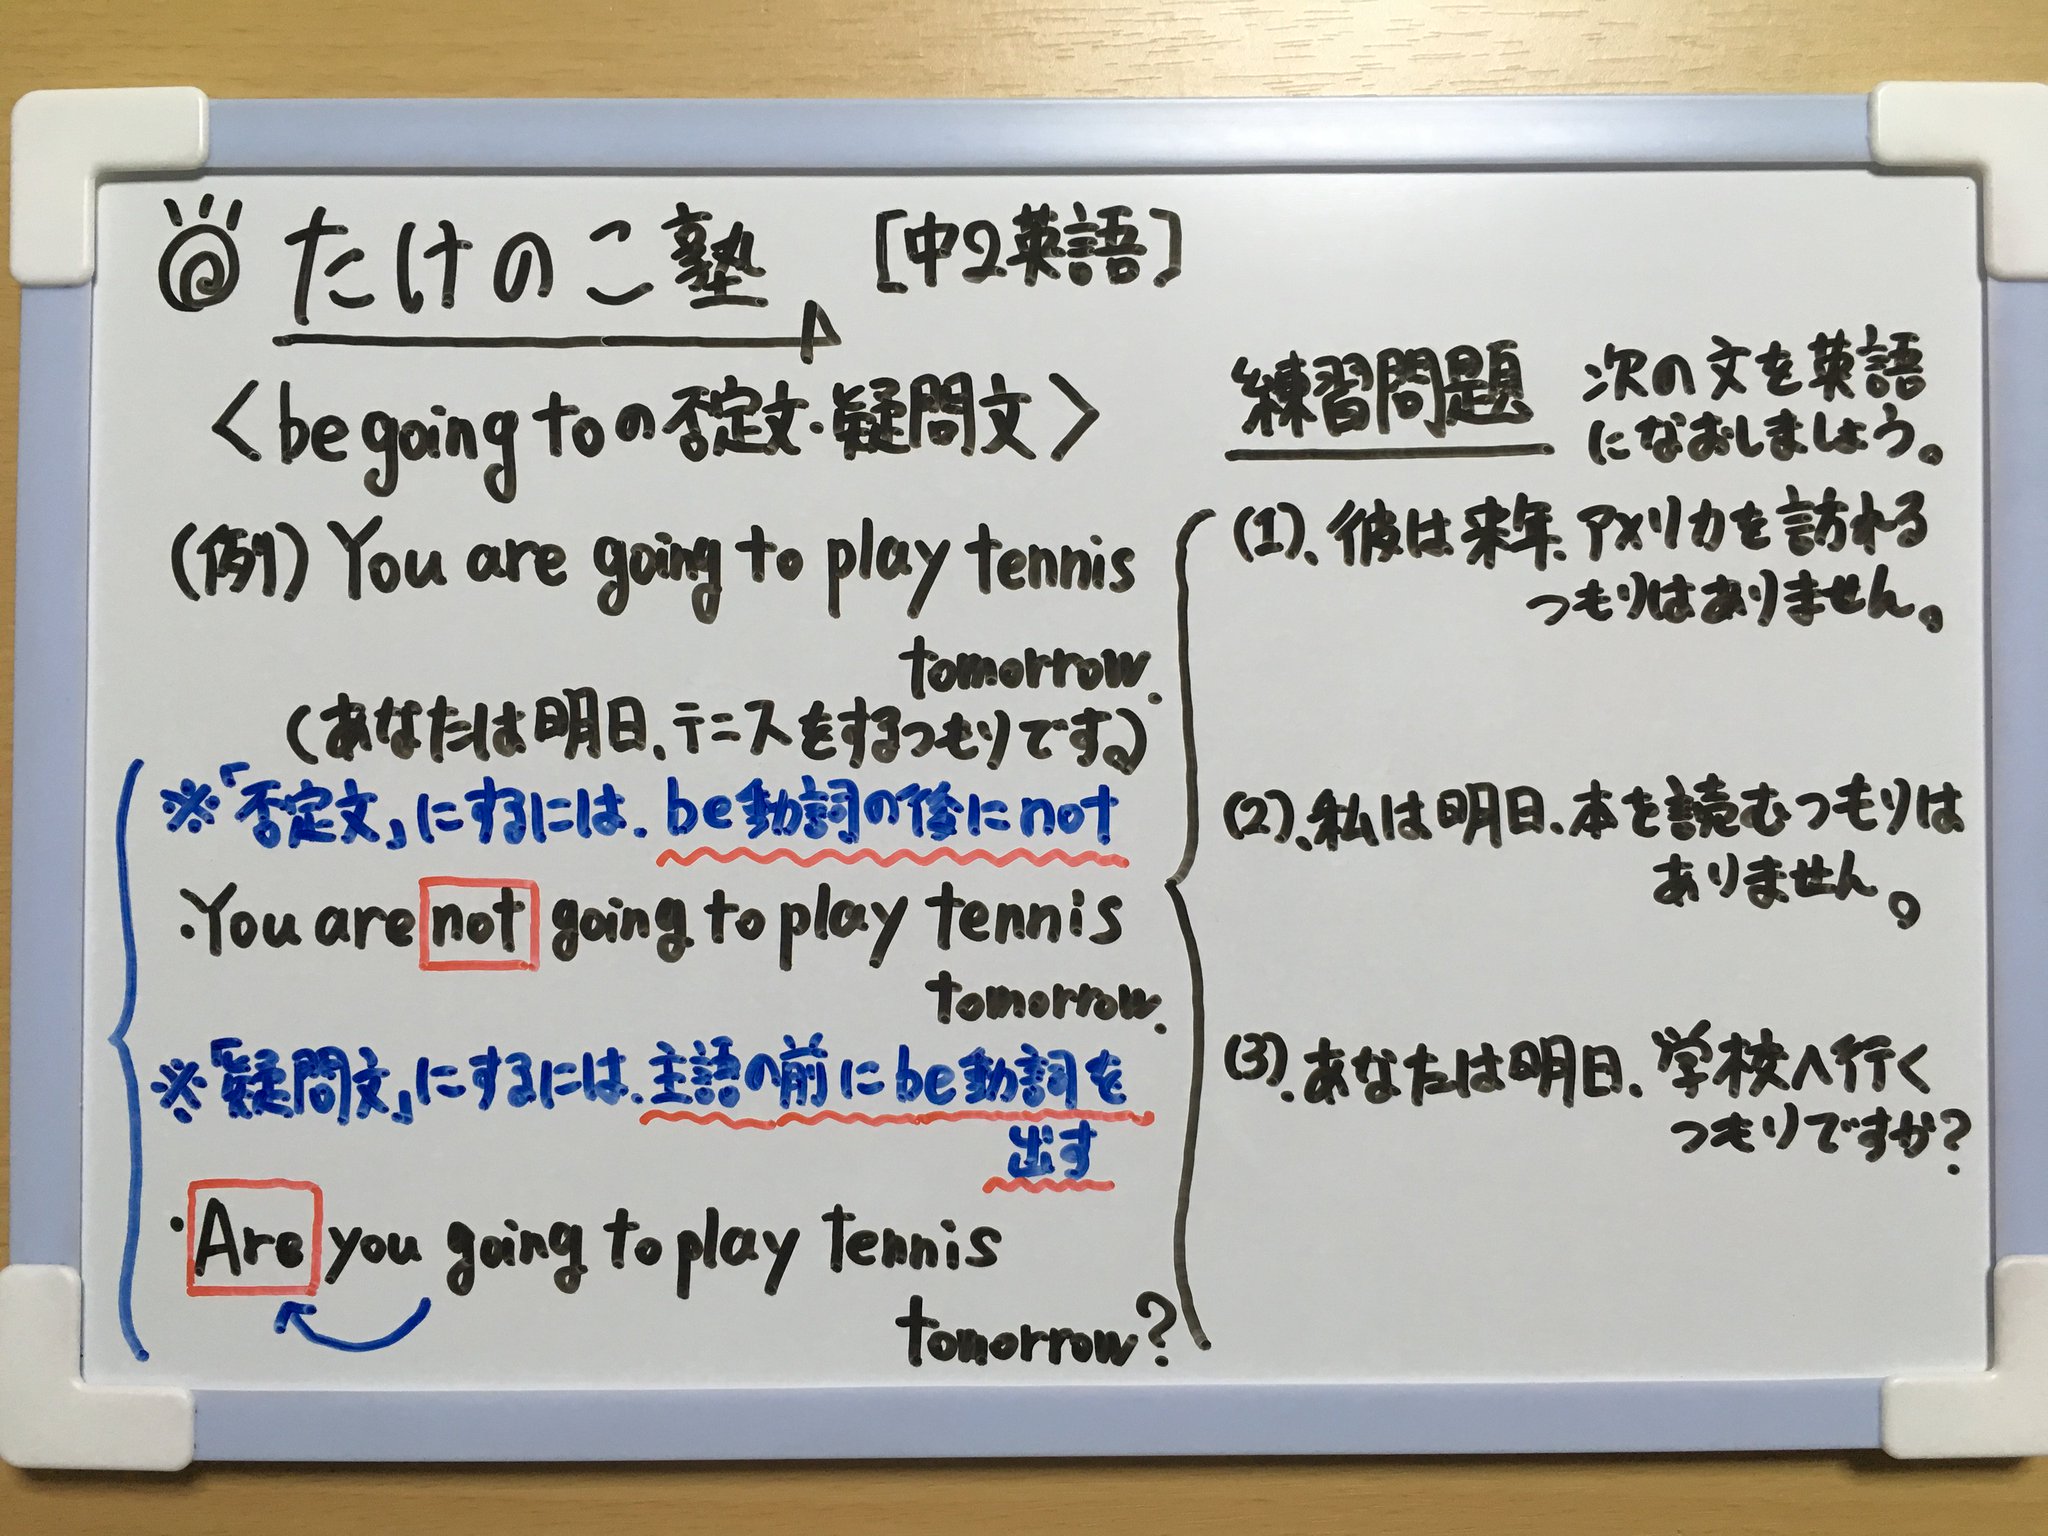 たけのこ塾 [中2英語]
<be going toの否定文・疑問文>
(例) You are going to play tennis
tomorrow.
(あなたは明日、テニスをするつもりです。)
※「否定文」にするには、be動詞の後にnot
・You are not going to play tennis
tomorrow.
※「疑問文」にするには、主語の前にbe動詞を
出す
・Are you going to play tennis
tomorrow?
練習問題 次の文を英語
になおしましょう。
(1)、彼は来年、アメリカを訪れる
つもりはありません。
(2)、私は明日、本を読むつもりは
ありません。
(3)、あなたは明日、学校へ行く
つもりですか?